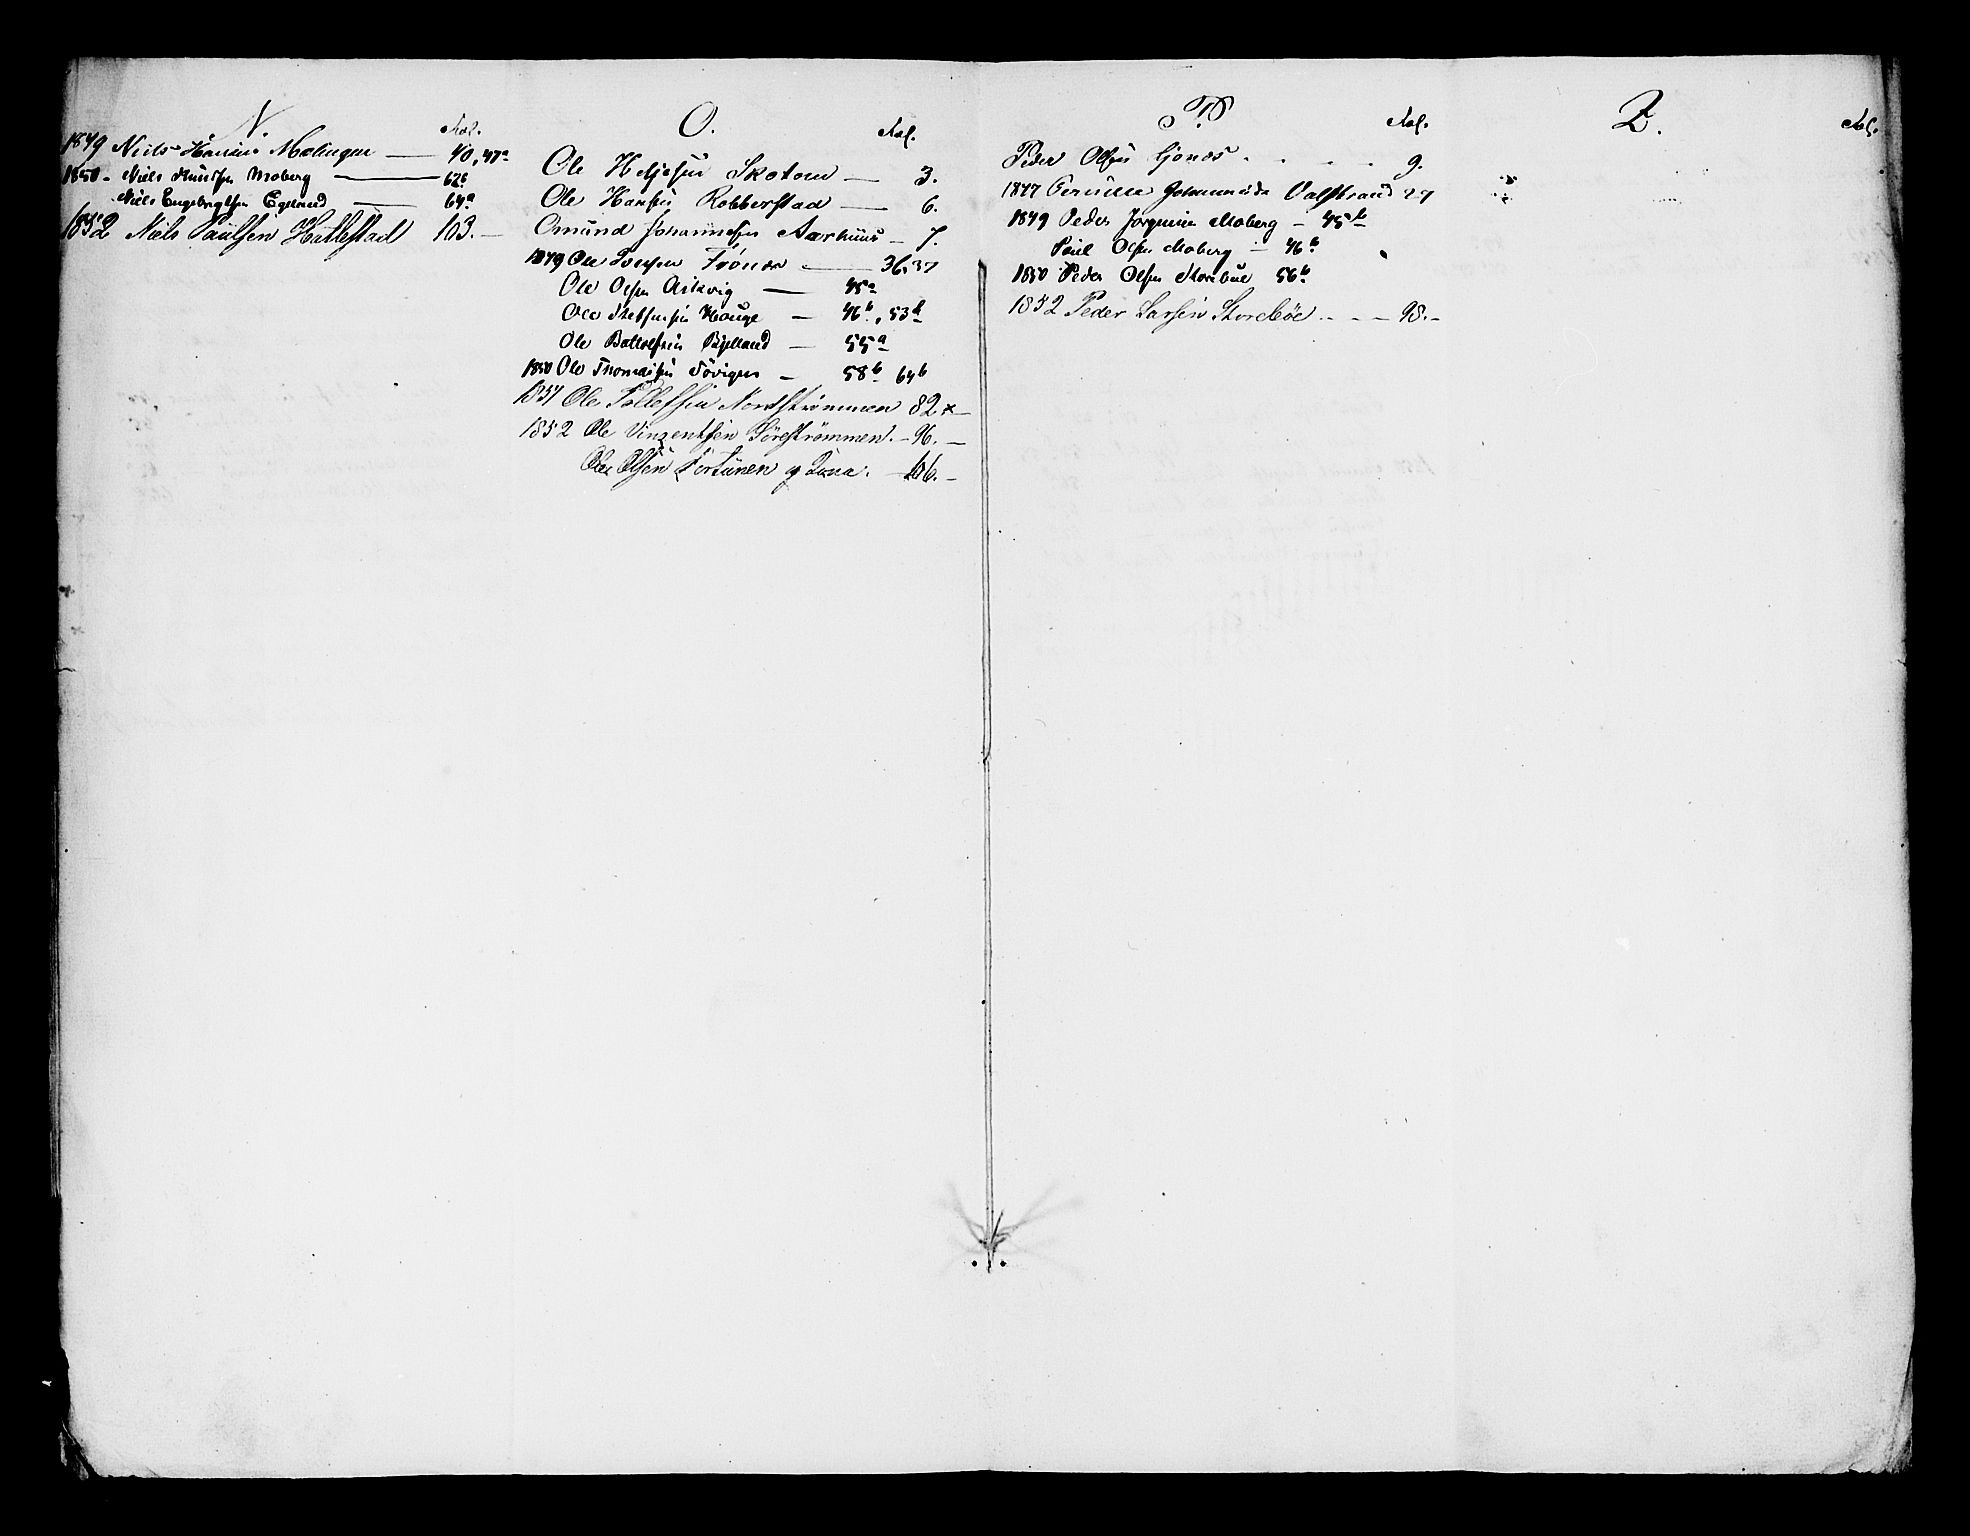 N
Fol.
1849 Niels Hansen Malingen — 40, 47a
1850 - Niels Knudsen Moberg — 62b
Niels Engebrigtsen Egeland — 64a
1852 Niels Paulsen Hattlestad 103. —
O.
Fol.
Ole Heljesen Skotom — 3.
Ole Hansen Robberstad — 6.
Omund Johannesen Aarhuus — 7.
1849 Ole Trönes — 36, 37
Ole Olsen Askvig — 45a
Ole Hauge — 46b, 53b
Ole Botholfsen Røjlland — 55a
1850 Ole Thomassen Sövigen — 58b 64b
1851 Ole Tollefsen Nordströmmen 82. x —
1852 Ole Vinzentsen Söreströmmen. — 96. —
Ole Olsen Fortunen og — 106. —
P.
Fol.
Peder Olsen Gjønes . . . . 9.
1847 Pernille Johannesdr Valstrand 27
1849 Peder Jörgensen Moberg — 45b
Poul Olsen Moberg — 46b
1850 Peder Olsen Storebøe 56b
1852 Peder Larsen Storebøe . — — — 98. —
Q.
Fol.